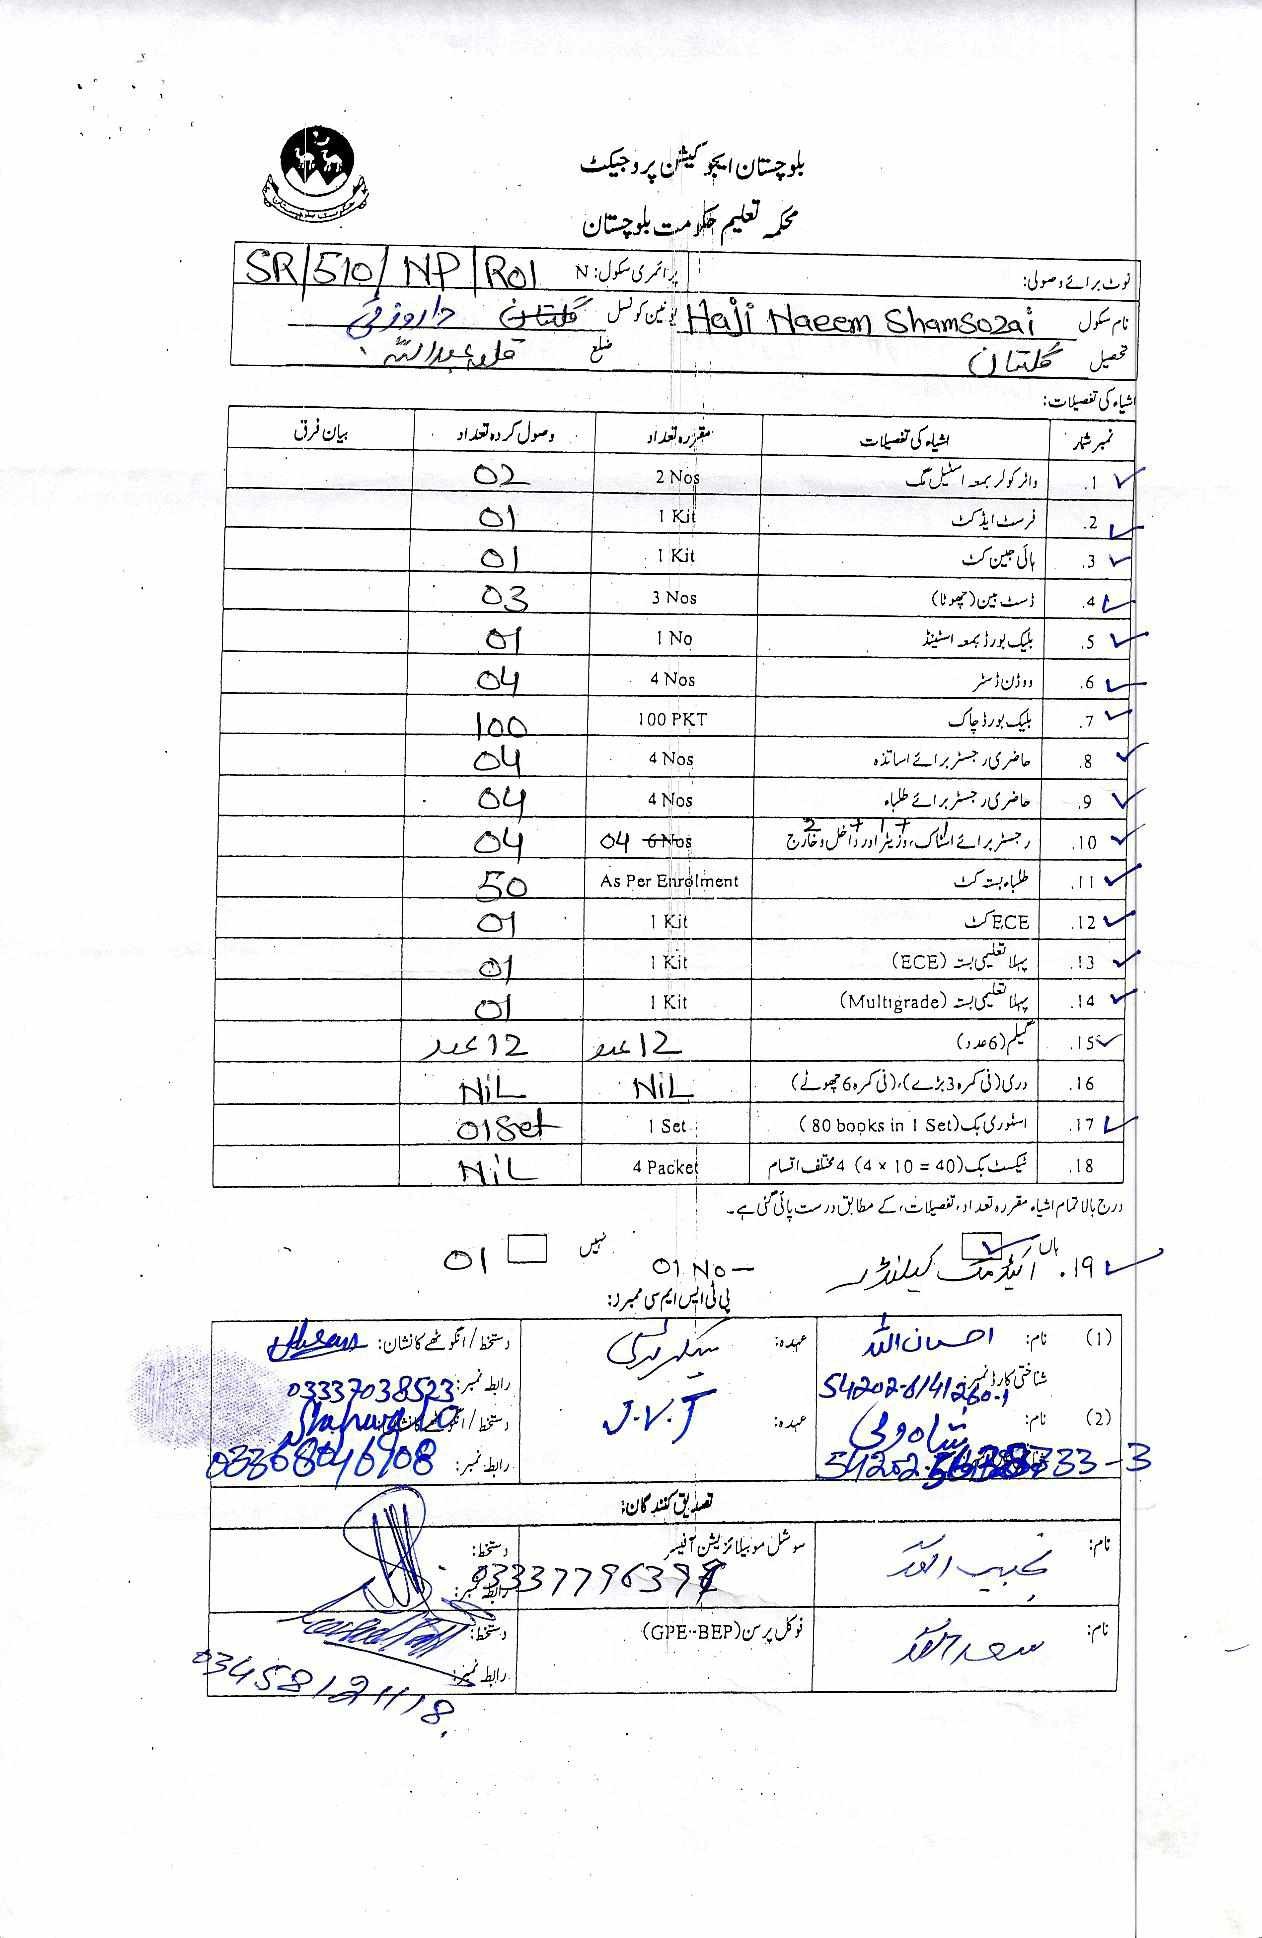 بلوچستان ایجوکیشن پروجیکٹ
محکمہ تعلیم حکومت بلوچستان
نوٹ برائے وصولی: پرائمری سکول: N SR/510/NP/R01
نام سکول Haji Naeem Shamsozai یونین کونسل گلستان داروزئی
تحصیل گلستان ضلع قلعہ عبداللہ
اشیاء کی تفصیلات:
نمبر شمار اشیاء کی تفصیلات مقررہ تعداد وصول کردہ تعداد بیان فرق
1. واٹر کولر بمعہ اسٹیل مگ 2 Nos 02
2. فرسٹ ایڈ کٹ 1 Kit 01
3. ہائی جین کٹ 1 Kit 01
4. ڈسٹ بین (چھوٹا) 3 Nos 03
5. بلیک بورڈ بمعہ اسٹینڈ 1 No 01
6. ووڈن ڈسٹر 4 Nos 04
7. بلیک بورڈ چاک 100 PKT 100
8. حاضری رجسٹر برائے اساتذہ 4 Nos 04
9. حاضری رجسٹر برائے طلباء 4 Nos 04
10. رجسٹر برائے اسٹاک، وزیٹر اور داخل و خارج 2 + 1 + 1 6 Nos 04 04
11. طلباء بستہ کٹ As Per Enrolment 50
12. ECE کٹ 1 Kit 01
13. پہلا تعلیمی بستہ (ECE) 1 Kit 01
14. پہلا تعلیمی بستہ (Multigrade) 1 Kit 01
15. گلیم (6 عدد) 12 عدد 12 عدد
16. دری (فی کمرہ 3 بڑے)، (فی کمرہ 6 چھوٹے) NiL NiL
17. اسٹوری بک (80 books in 1 Set) 1 Set 01 Set
18. ٹیکسٹ بک (4 × 10 = 40) 4 مختلف اقسام 4 Packet NiL
درج بالا تمام اشیاء مقررہ تعداد، تفصیلات، کے مطابق درست پائی گئی ہے۔
ہاں نہیں
19. اکیڈمک کیلنڈر 01 No 01
پی ٹی ایس ایم سی ممبرز:
(1) نام: احسان اللہ عہدہ: سیکریٹری دستخط / انگوٹھے کا نشان: Ihsan
شناختی کارڈ نمبر: 54202-6141260-1 رابطہ نمبر: 03337038523
(2) نام: شاہ ولی عہدہ: J.V.T دستخط / انگوٹھے کا نشان:
رابطہ نمبر: 03368046908
تصدیق کنندگان:
نام: نجیب اللہ سوشل موبیلائزیشن آفیسر دستخط:
رابطہ نمبر:
نام: سعد اللہ فوکل پرسن (GPE-BEP) دستخط:
رابطہ نمبر: 03458121118